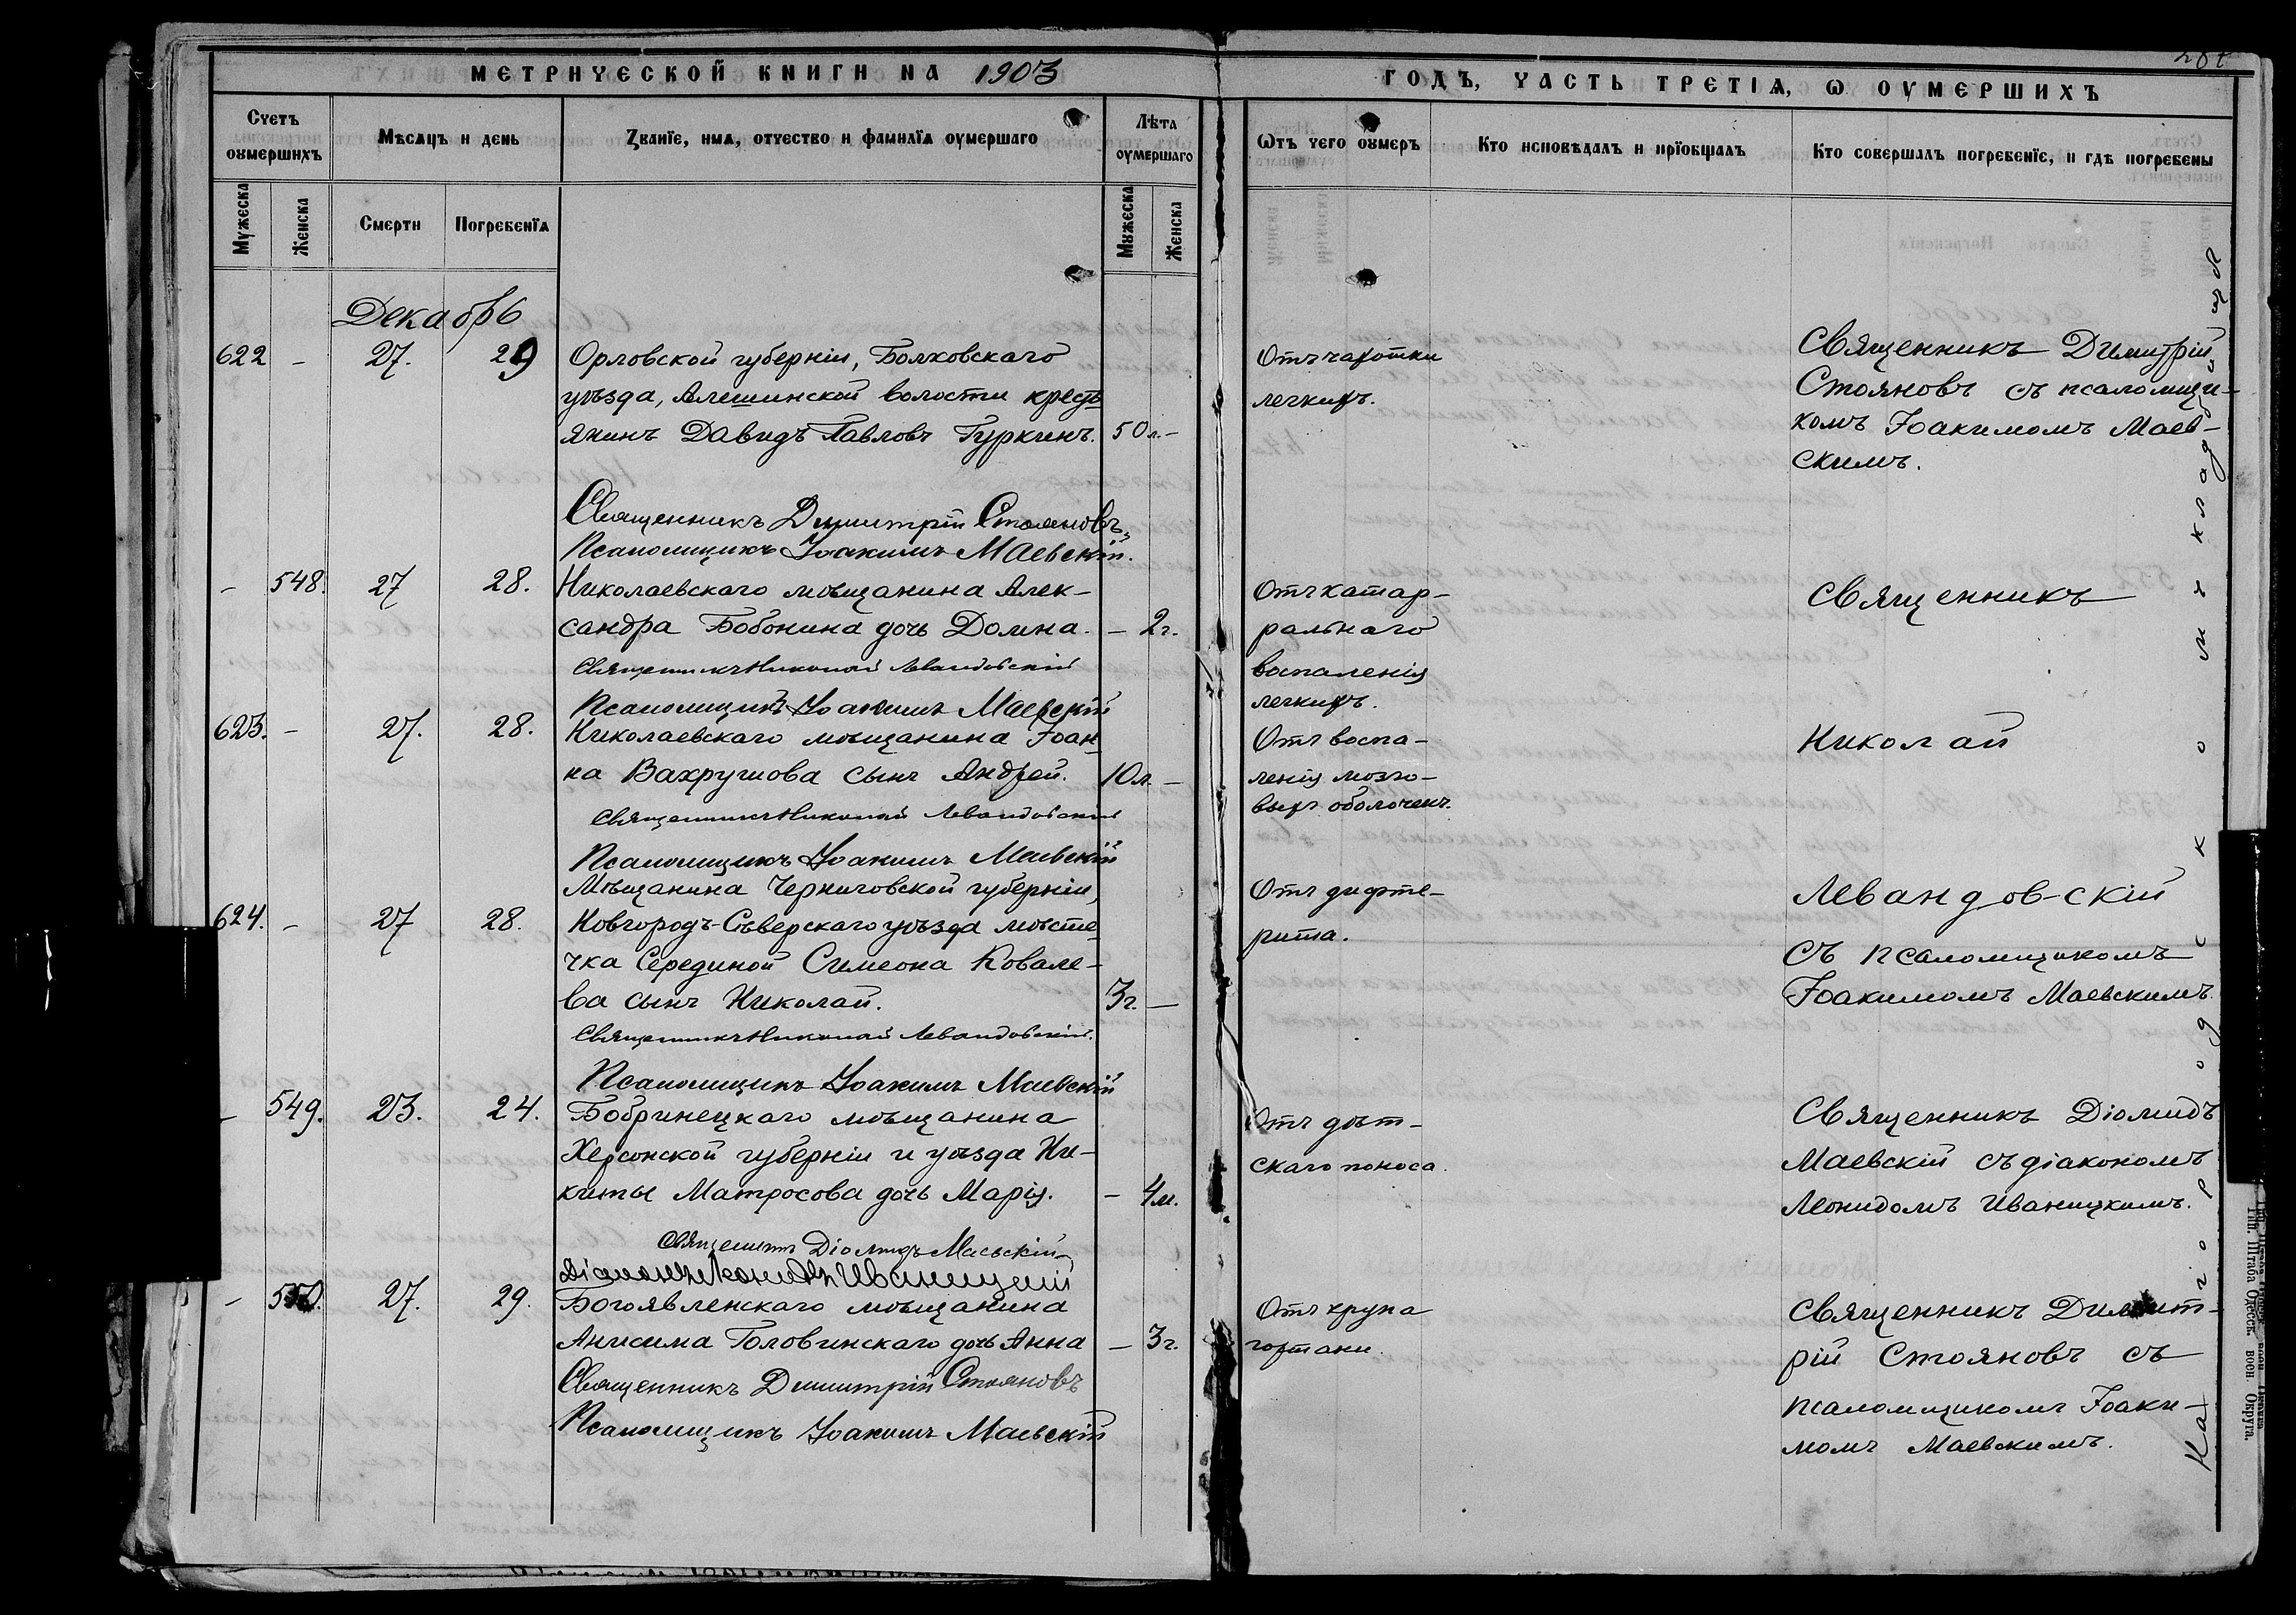 МЕТРИЧЕСКОЙ КНИГИ НА 1903
ГОДЪ, ЧАСТЬ ТРЕТІѦ, Ѡ ОУМЕРШИХЪ
Счетъ оумершихъ
Мѣсѧцъ и день
Званїе, имѧ, отчество и фамилїѧ оумершаго
Лѣта оумершаго
Ѿтъ чего оумеръ
Кто исповѣдалъ и прїобщалъ
Кто совершалъ погребенїе, и гдѣ погребены
Мужеска
Женска
Смерти
Погребенїѧ
Мужеска
Женска
Декабрь
622 - 27. 29
Орловской губерніи, Болховскаго
уѣзда, Алешинской волости кресть
янинъ Давидъ Павловъ Гуркинъ. 50 л. -
Отъ чахотки
легкихъ.
Священникъ Димитрій
Стояновъ съ псаломщи-
комъ Іоакимомъ Маев-
скимъ.
Священникъ Димитрій Стояновъ
Псаломщикъ Іоакимъ Маевскій.
- 548. 27 28.
Николаевскаго мѣщанина Алек-
сандра Бобонина дочь Домна. - 2 г.
Отъ катар-
ральнаго
воспаленія
легкихъ.
Священникъ
Священникъ Николай Левандовскій
Псаломщикъ Іоакимъ Маевскій
623. - 27. 28.
Николаевскаго мѣщанина Іоан-
на Вахрушова сынъ Андрей. 10 л. -
Отъ воспа-
ленія мозго-
выхъ оболочекъ.
Николай
Священникъ Николай Левандовскій
Псаломщикъ Іоакимъ Маевскій
624. - 27 28.
Мѣщанина Черниговской губерніи,
Новгородъ-Сѣверскаго уѣзда мѣсте-
чка Серединой Симеона Ковале-
ва сынъ Николай. 3 г. -
Отъ дифте-
рита.
Левандов-скій
съ псаломщикомъ
Іоакимомъ Маевскимъ.
Священникъ Николай Левандовскій.
Псаломщикъ Іоакимъ Маевскій
- 549. 23. 24.
Бобринецкаго мѣщанина
Херсонской губерніи и уѣзда Ни-
киты Матросова дочь Марія. - 4 м.
Отъ дѣт-
скаго поноса.
Священникъ Діомидъ
Маевскій съ діакономъ
Леонидомъ Иваницкимъ.
Священникъ Діомидъ Маевскій
Діаконъ Леонидъ Иваницкій
- 550. 27. 29.
Богоявленскаго мѣщанина
Анисима Головинскаго дочь Анна - 3 г.
Отъ крупа
гортани.
Священникъ Димит-
рій Стояновъ съ
псаломщикомъ Іоаки-
момъ Маевскимъ.
Священникъ Димитрій Стояновъ
Псаломщикъ Іоакимъ Маевскій
На городскомъ кладбищѣ
Тип. Штаба Одесск. воен. Округа.